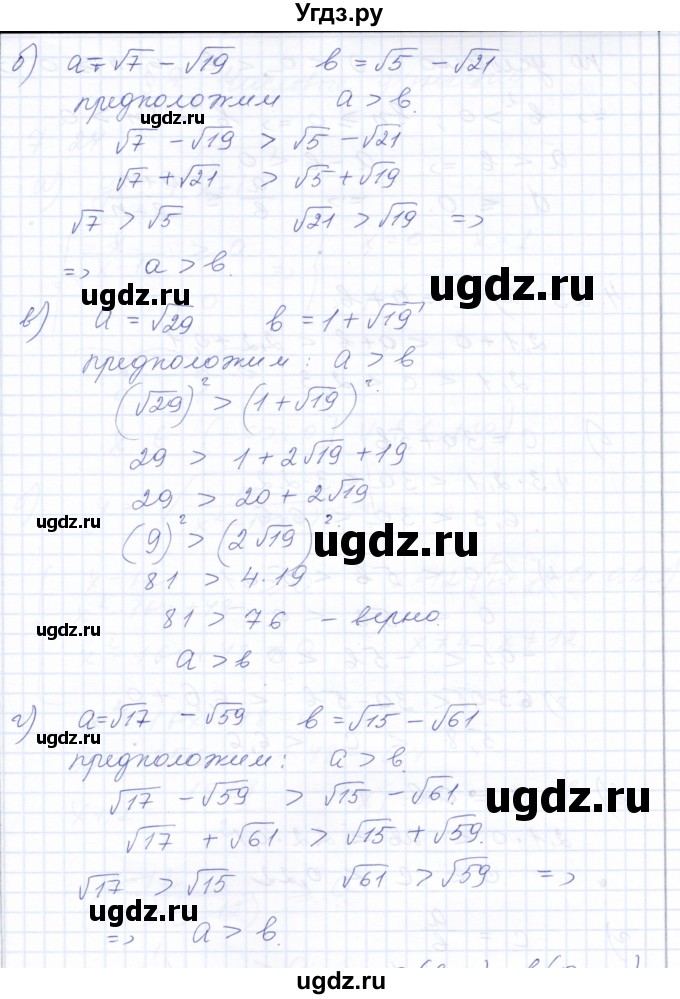 Угдз.ру
б) a = √7 − √19 b = √5 − √21
предположим a > b.
√7 − √19 > √5 − √21
√7 + √21 > √5 + √19
√7 > √5 √21 > √19 =>
=> a > b.
ugdz.ru
ugdz.ru
в) a = √29 b = 1 + √19
предположим: a > b
(√29)² > (1 + √19)².
29 > 1 + 2√19 + 19
29 > 20 + 2√19
ugdz.ru
(9)² > (2√19)².
ugdz.ru
81 > 4·19
81 > 76 – верно.
ugdz.ru
a > b
г) a = √17 − √59 b = √15 − √61
ugdz.ru
предположим: a > b.
√17 − √59 > √15 − √61.
ugdz.ru
√17 + √61 > √15 + √59.
√17 > √15 √61 > √59 =>
ugdz.ru
=> a > b.
ugdz.ru